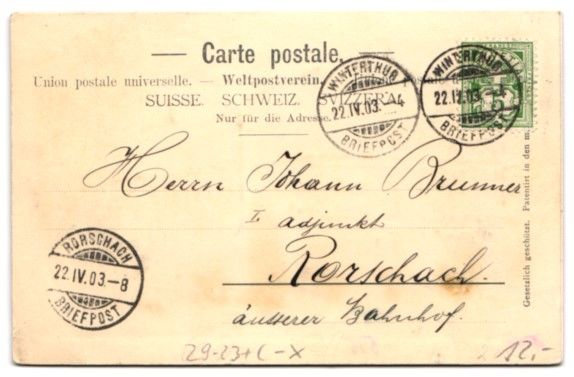 — Carte postale. —
Union postale universelle. — Weltpostverein. postale
SUISSE. SCHWEIZ. SVIZZERA.
Nur für die Adresse.
WINTERTHUR
22.IV.03.–4
BRIEFPOST
WINTERTHUR
22.IV.03.
BRIEFPOST
5
Herrn Johann Brunner
I. adjunkt
Rorschach.
äusserer Bahnhof.
RORSCHACH
22.IV.03–8
BRIEFPOST
Gesetzlich geschützt. Patentirt in den m.
29-23+C-X
12.-